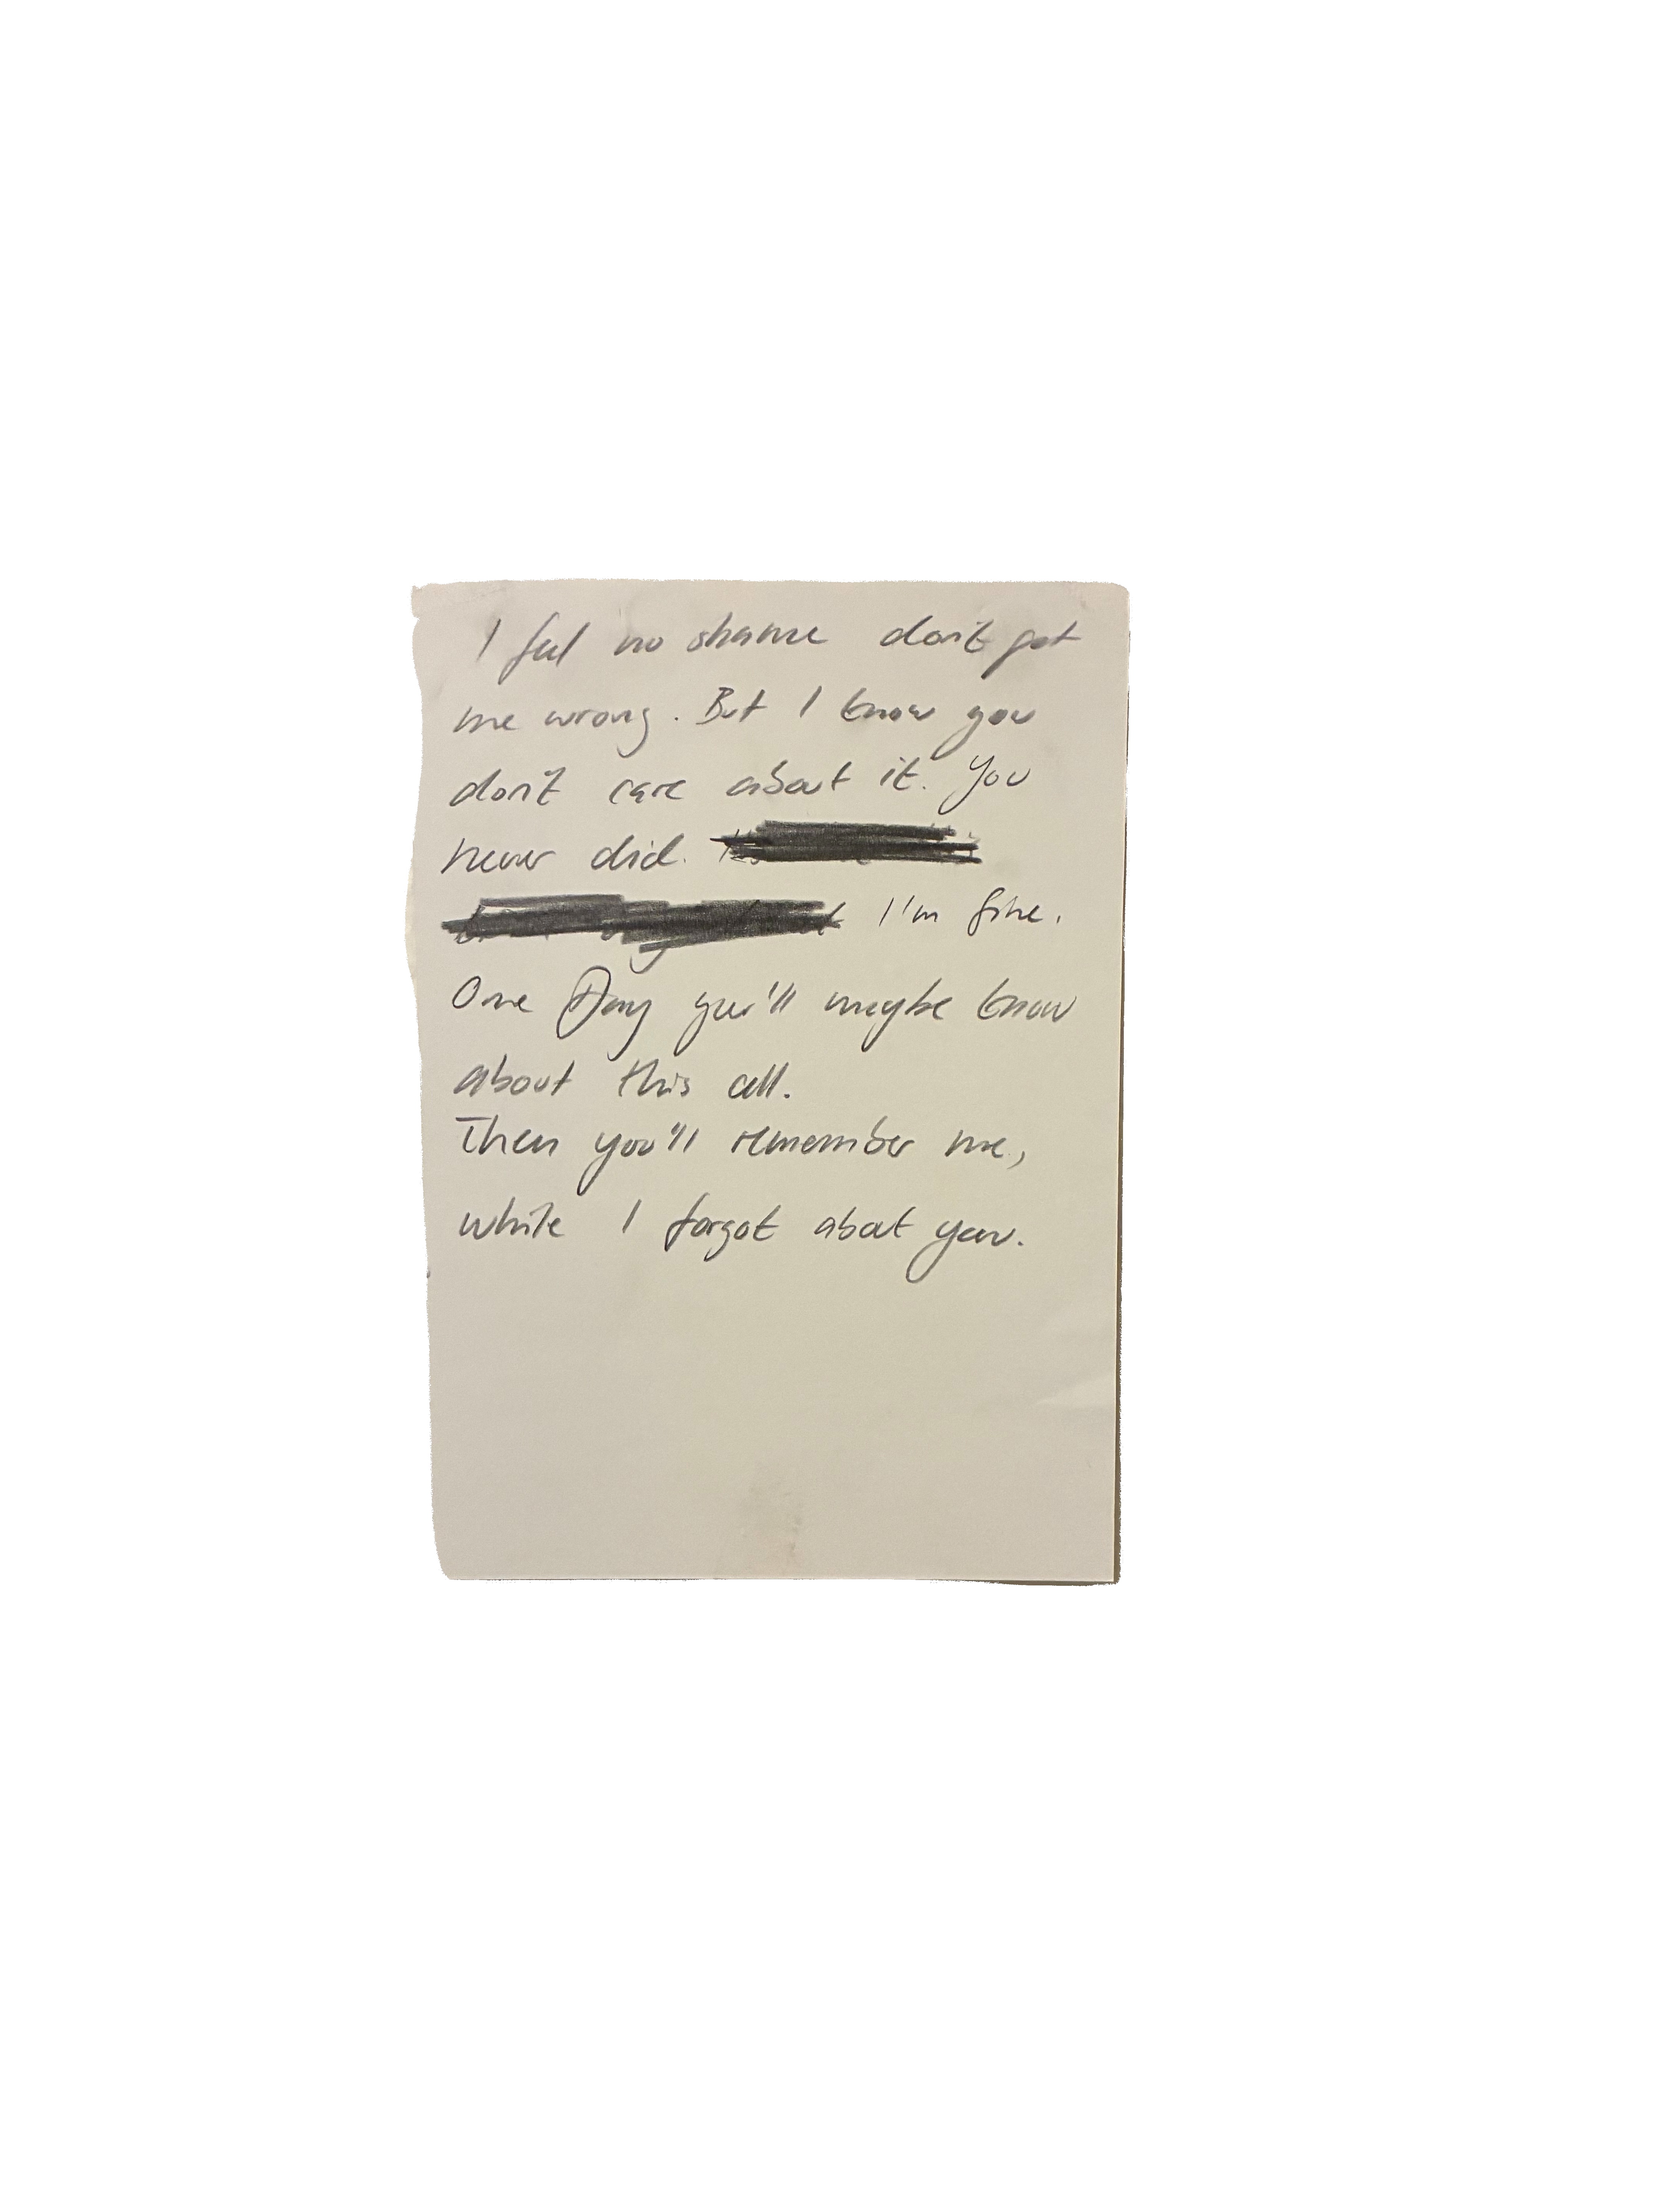 I feel no shame don't get
me wrong. But I know you
don't care about it. You
never did.
I'm fine.
One Day you'll maybe know
about this all.
Then you'll remember me,
while I forgot about you.